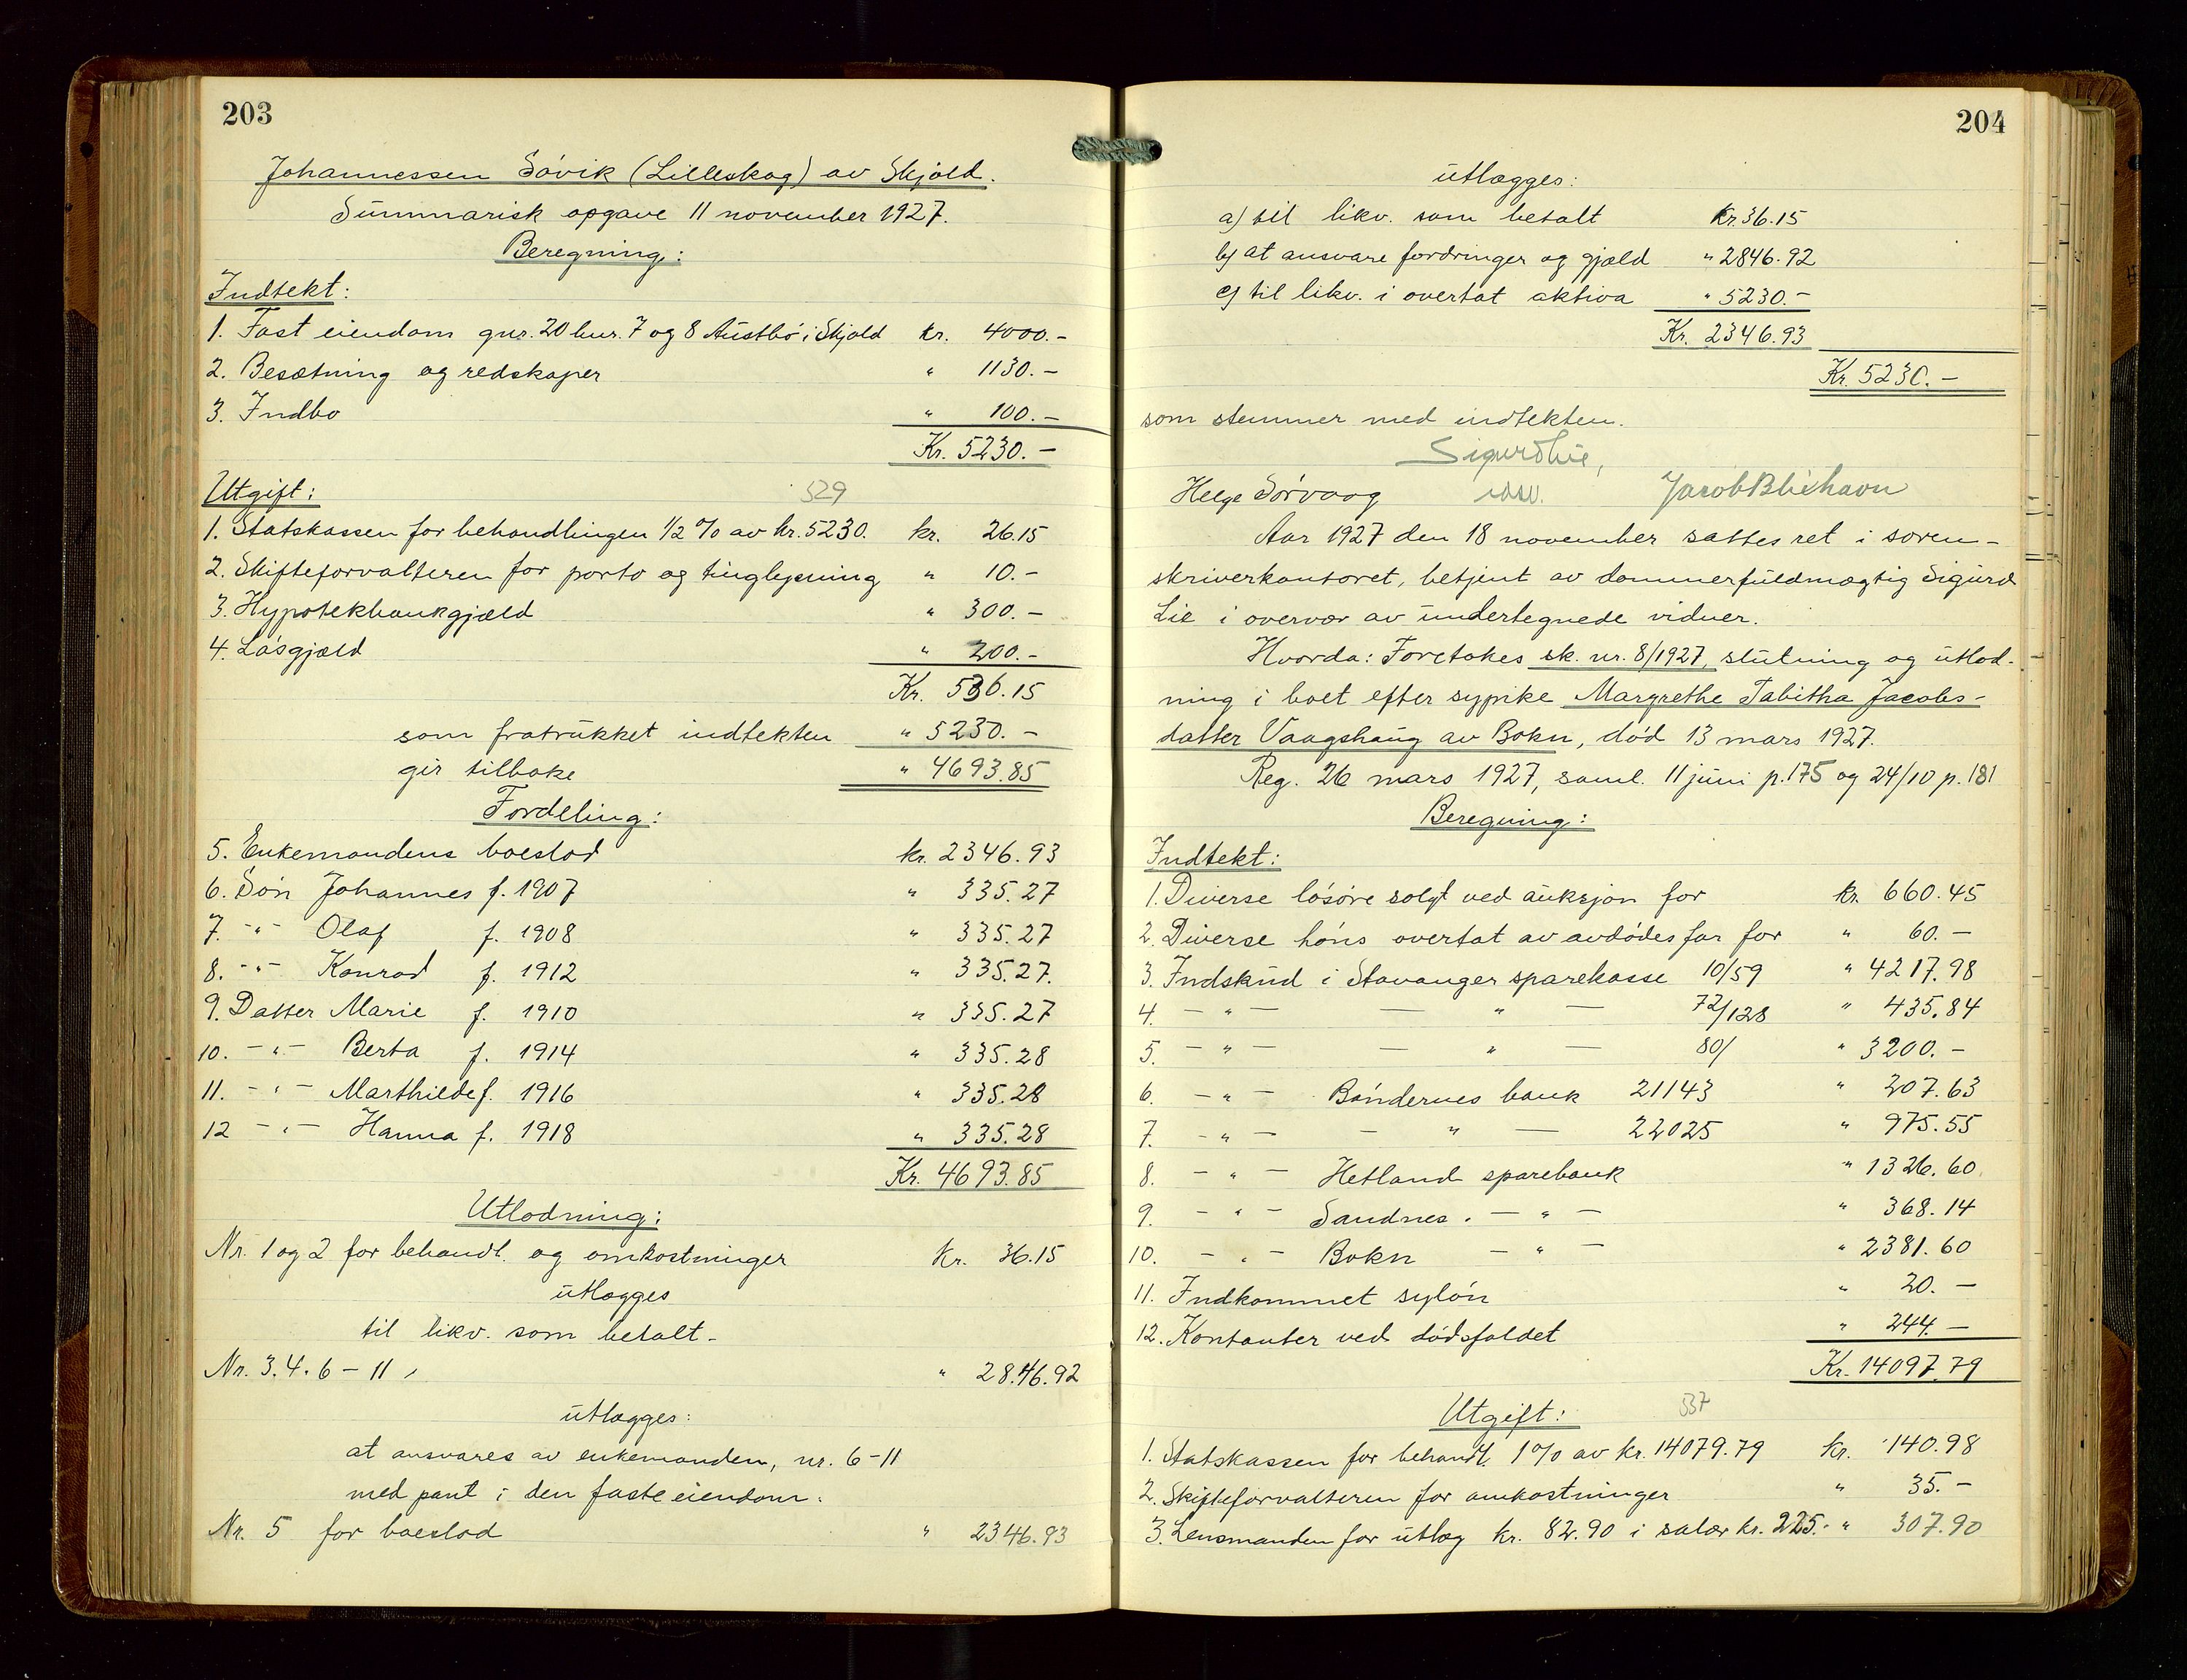 203
Johannessen Søvik (Lilleskog) av Skjold.
Summarisk opgave 11 november 1927.
Beregning:
Indtekt:
1. Fast eiendom gnr. 20 bnr. 7 og 8 Austbø i Skjold kr. 4000.-
2. Besætning og redskaper " 1130.-
3. Indbo " 100.-
Kr. 5230.-
Utgift: 529
1. Statskassen for behandlingen 1/2 % av kr. 5230. kr. 26.15
2. Skifteforvalteren for porto og tinglysning " 10.-
3. Hypotekbankgjæld " 300.-
4. Løsgjæld " 200.-
Kr. 536.15
som fratrukket indtekten " 5230.-
gir tilbake " 4693.85
Fordeling:
5. Enkemandens boeslod kr. 2346.93
6. Søn Johannes f. 1907 " 335.27
7. -"- Olaf f. 1908 " 335.27
8. -"- Konrad f. 1912 " 335.27.
9. Datter Marie f. 1910 " 335.27
10. -"- Berta f. 1914 " 335.28
11. -"- Marthilde f. 1916 " 335.28
12 -"- Hanna f. 1918 " 335.28
Kr. 4693.85
Utlodning:
Nr. 1 og 2 for behandl. og omkostninger Kr. 36.15
utlægges
til likv. som betalt.
Nr. 3.4.6-11, " 2846.92
utlægges:
at ansvares av enkemanden, nr. 6-11
med pant i den faste eiendom.
Nr. 5 for boeslod " 2346.93
204
utlægges:
a) til likv. som betalt Kr. 36.15
b) at ansvare fordringer og gjæld " 2846.92
c) til likv. i overtat aktiva " 5230.-
Kr. 2346.93
Kr. 5230.-
som stemmer med indtekten.
Sigurd Lie,
Helge Sørvaag Jacob Blikhavn
Aar 1927 den 18 november sattes ret i soren-
skriverkontoret, betjent av dommerfuldmægtig Sigurd
Lie i overvær av undertegnede vidner.
Hvorda: Foretokes sk. nr. 8/1927, slutning og utlod-
ning i boet efter sypike Margrethe Tabitha Jacobs-
datter Vaagshaug av Bokn, død 13 mars 1927.
Reg. 26 mars 1927, saml. 11 juni p. 175 og 24/10 p. 181
Beregning:
Indtekt:
1. Diverse løsøre solgt ved auksjon for kr. 660.45
2. Diverse høns overtat av avdødes far for " 60.-
3. Indskud i Stavanger sparekasse 10/59 " 4217.98
4. -"- - " - 72/128 " 435.84
5. -"- - " - 80/ " 3200.-
6. -"- Bøndernes bank 21143 " 207.63
7. -"- - " - 22025 " 975.55
8. -"- Hetland sparebank " 1326.60.
9. -"- Sandnes. -"- " 368.14
10. -"- Bokn -"- " 2381.60
11. Indkommet syløn " 20.-
12. Kontanter ved dødsfaldet " 244.-
Kr. 14097.79
Utgift: 537
1. Statskassen for behandl. 1% av kr. 14079.79 kr. 140.98
2. Skifteforvalteren for omkostninger " 35.-
3. Lensmanden for utlæg kr. 82.90 i salær kr. 225.- " 307.90